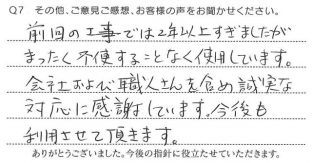 Q7 その他、ご意見ご感想、お客様の声をお聞かせください。
前回の工事では2年以上すぎましたが
まったく不便することなく使用しています。
会社および職人さんを含め誠実な
対応に感謝しています。今後も
利用させて頂きます。
ありがとうございました。今後の指針に役立たせていただきます。